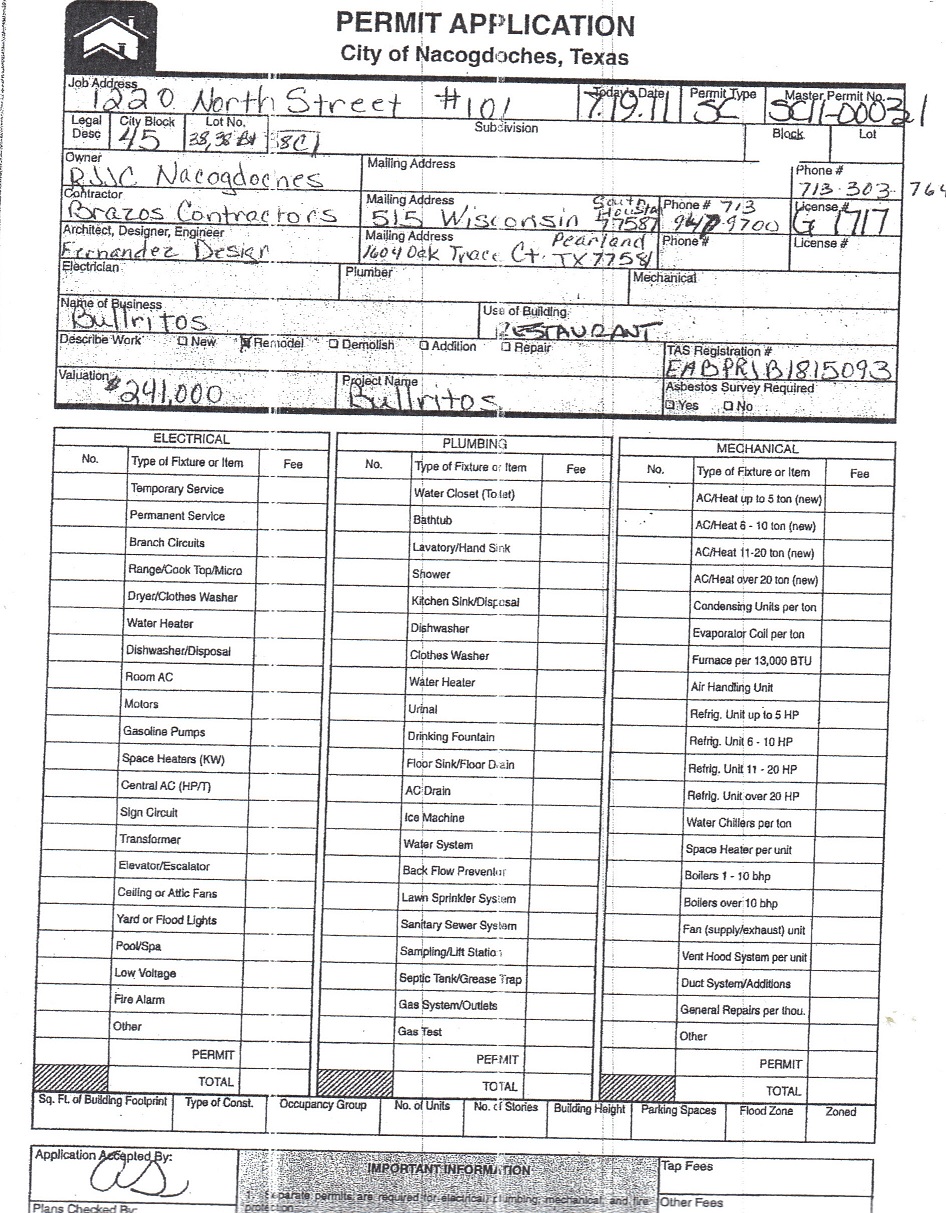 PERMIT APPLICATION
City of Nacogdoches, Texas
Job Address Today's Date Permit Type Master Permit No.
1220 North Street #101 7.19.11 SC SC11-000321
Legal Desc City Block Lot No. Subdivision Block Lot
45 38,38 8C1
Owner Mailing Address Phone #
RJJC Nacogdoches 713-303-764
Contractor Mailing Address Phone # License #
Brazos Contractors 515 Wisconsin South Houston 77587 713 947-9700 G 1717
Architect, Designer, Engineer Mailing Address Phone # License #
Fernandez Design 1604 Oak Trace Ct. Pearland TX 77581
Electrician Plumber Mechanical
Name of Business Use of Building
Bullritos RESTAURANT
Describe Work New Remodel Demolish Addition Repair TAS Registration #
EABPRJB1815093
Valuation Project Name Asbestos Survey Required
$241,000 Bullritos Yes No
ELECTRICAL PLUMBING MECHANICAL
No. Type of Fixture or Item Fee No. Type of Fixture or Item Fee No. Type of Fixture or Item Fee
Temporary Service Water Closet (Toilet) AC/Heat up to 5 ton (new)
Permanent Service Bathtub AC/Heat 6 - 10 ton (new)
Branch Circuits Lavatory/Hand Sink AC/Heat 11-20 ton (new)
Range/Cook Top/Micro Shower AC/Heat over 20 ton (new)
Dryer/Clothes Washer Kitchen Sink/Disposal Condensing Units per ton
Water Heater Dishwasher Evaporator Coil per ton
Dishwasher/Disposal Clothes Washer Furnace per 13,000 BTU
Room AC Water Heater Air Handling Unit
Motors Urinal Refrig. Unit up to 5 HP
Gasoline Pumps Drinking Fountain Refrig. Unit 6 - 10 HP
Space Heaters (KW) Floor Sink/Floor Drain Refrig. Unit 11 - 20 HP
Central AC (HP/T) AC Drain Refrig. Unit over 20 HP
Sign Circuit Ice Machine Water Chillers per ton
Transformer Water System Space Heater per unit
Elevator/Escalator Back Flow Preventor Boilers 1 - 10 bhp
Ceiling or Attic Fans Lawn Sprinkler System Boilers over 10 bhp
Yard or Flood Lights Sanitary Sewer System Fan (supply/exhaust) unit
Pool/Spa Sampling/Lift Station Vent Hood System per unit
Low Voltage Septic Tank/Grease Trap Duct System/Additions
Fire Alarm Gas System/Outlets General Repairs per thou.
Other Gas Test Other
PERMIT PERMIT PERMIT
TOTAL TOTAL TOTAL
Sq. Ft. of Building Footprint Type of Const. Occupancy Group No. of Units No. of Stories Building Height Parking Spaces Flood Zone Zoned
Application Accepted By: IMPORTANT INFORMATION Tap Fees
as
1. Separate permits are required for electrical, plumbing, mechanical, and fire protection. Other Fees
Plans Checked By: